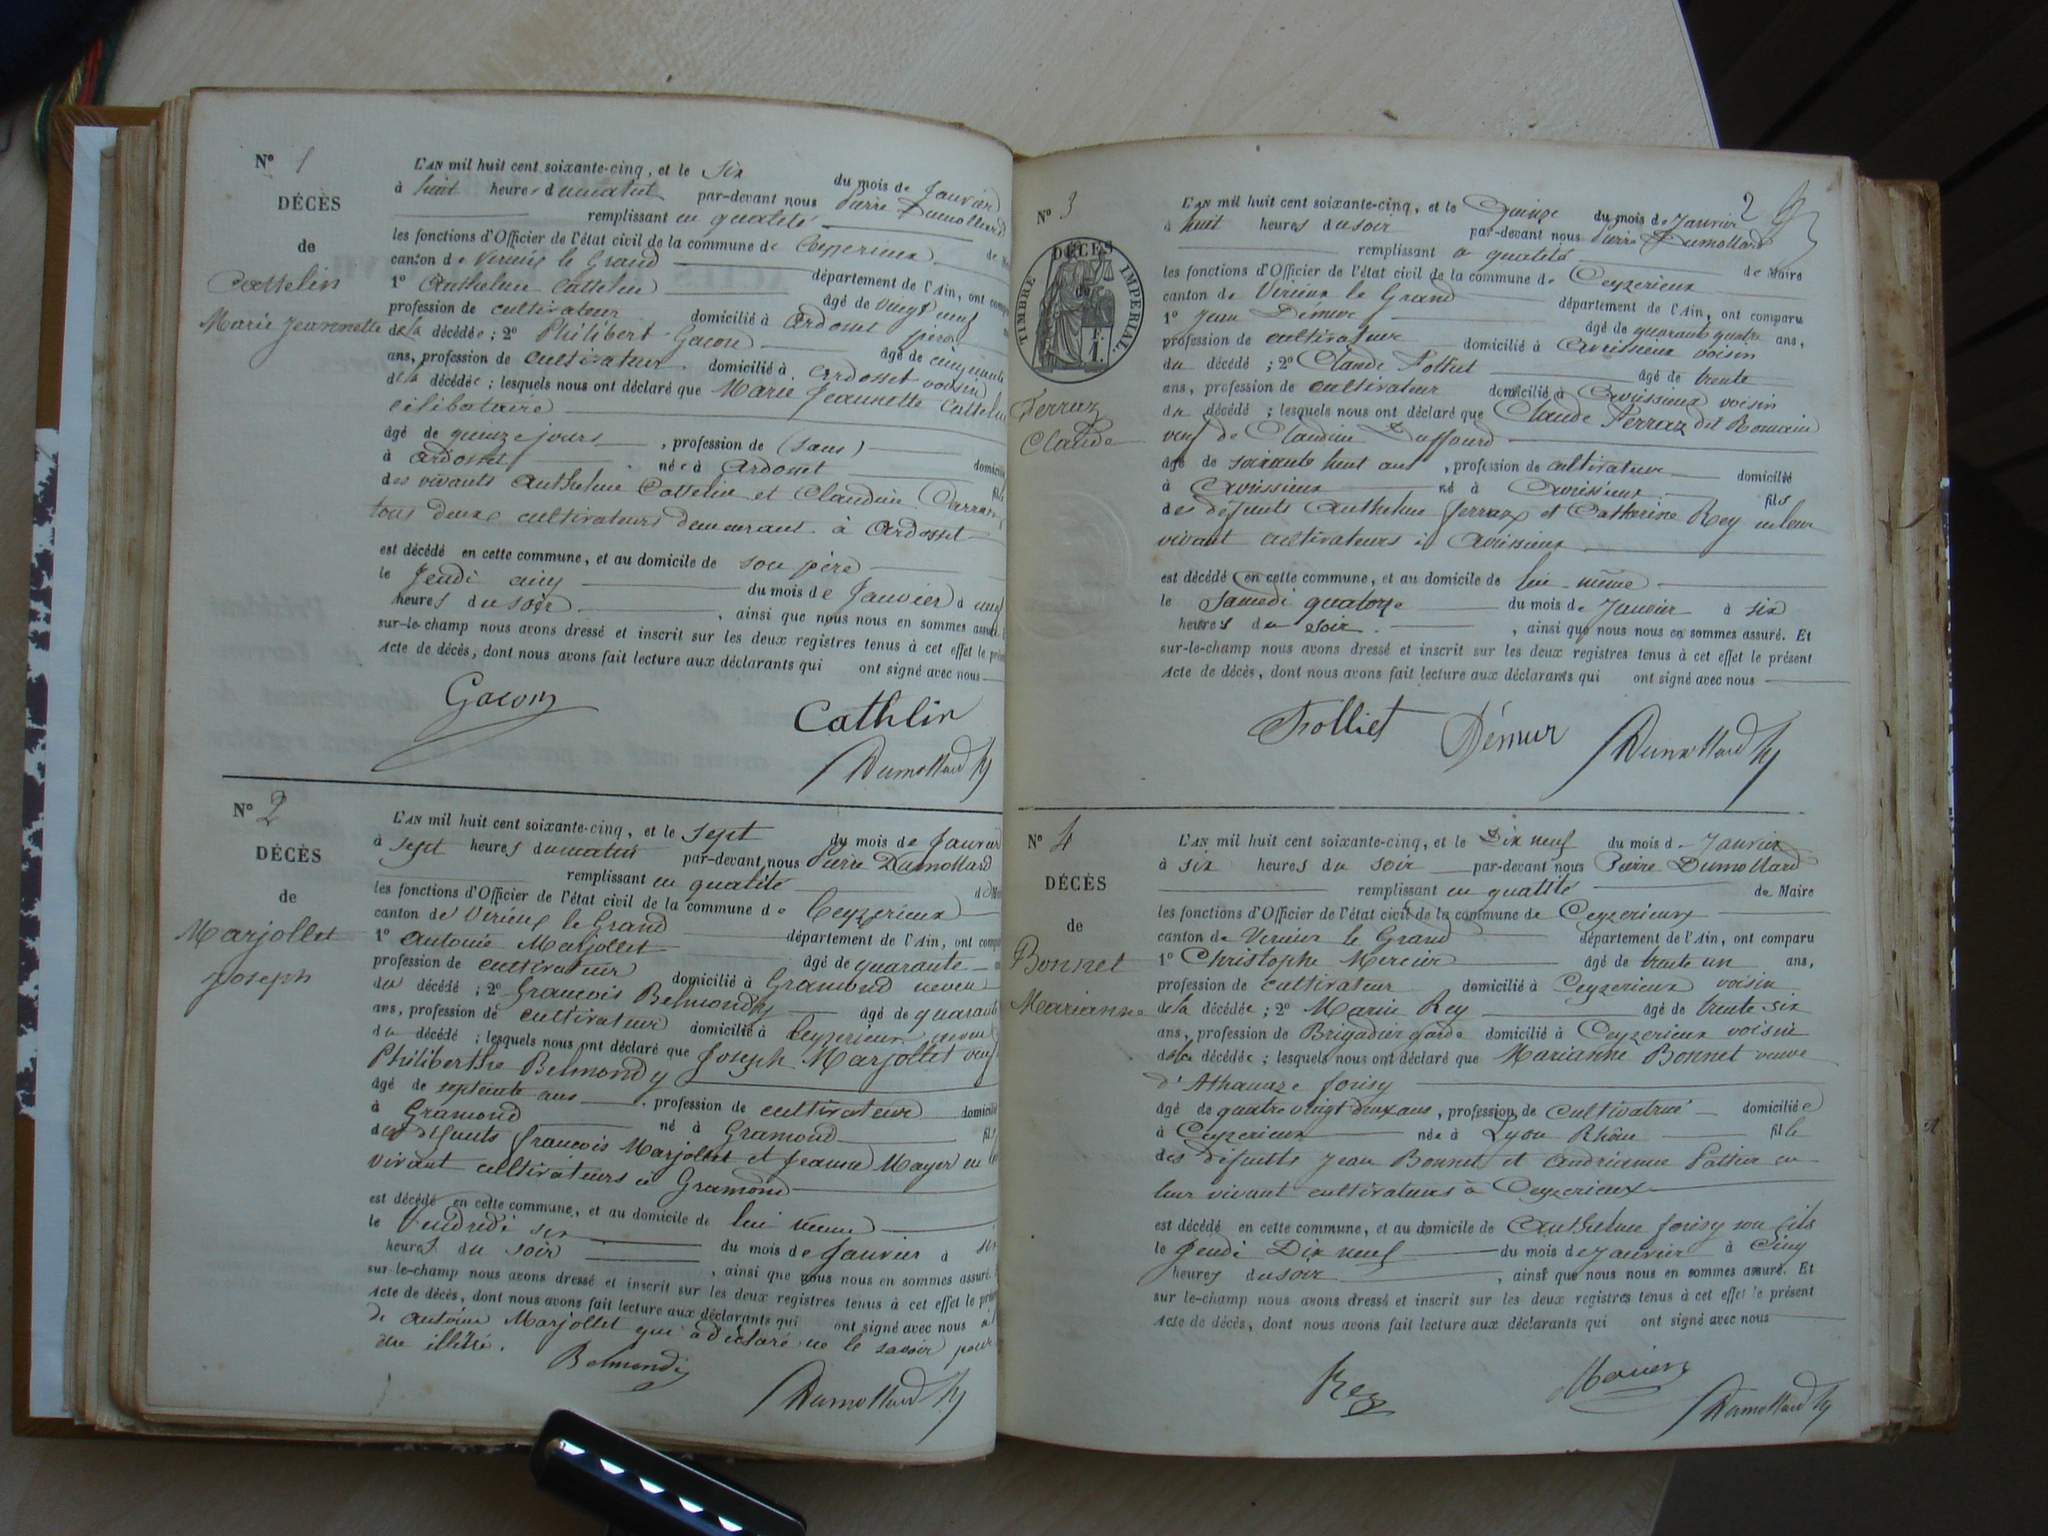 N° 1
DÉCÈS
de
Cattelin
Marie Jeannette
L'AN mil huit cent soixante-cinq, et le six du mois de Janvier
à huit heures du matin par-devant nous Pierre Dumollard
remplissant en qualité
les fonctions d'Officier de l'état civil de la commune de Ceyzerieux
canton de Virieux le Grand département de l'Ain, ont
1° Anthelme Cattelin âgé de vingt neuf
profession de cultivateur domicilié à Ardosset père
de la décédée ; 2° Philibert Gacon âgé de cinquante
ans, profession de cultivateur domicilié à Ardosset voisin
de la décédée ; lesquels nous ont déclaré que Marie Jeannette Cattelin
célibataire
âgé de quinze jours, profession de (sans)
à Ardosset née à Ardosset
des vivants Anthelme Cattelin et Claudine
tous deux cultivateurs demeurant à Ardosset
est décédé en cette commune, et au domicile de son père
le Jeudi cinq du mois de Janvier à
heures du soir, ainsi que nous nous en sommes
sur-le-champ nous avons dressé et inscrit sur les deux registres tenus à cet effet le
acte de décès, dont nous avons fait lecture aux déclarants qui ont signé avec nous
Gacon Cathlin
Dumollard
N° 2
DÉCÈS
de
Marjollet
Joseph
L'AN mil huit cent soixante-cinq, et le sept du mois de Janvier
à sept heures du matin par-devant nous Pierre Dumollard
remplissant en qualité
les fonctions d'Officier de l'état civil de la commune de Ceyzerieux
canton de Virieux le Grand département de l'Ain, ont
1° Antoine Marjollet âgé de quarante
profession de cultivateur domicilié à Gramond neveu
du décédé ; 2° François Belmondy âgé de
ans, profession de cultivateur domicilié à Ceyzerieux neveu
du décédé ; lesquels nous ont déclaré que Joseph Marjollet veuf
Philiberthe Belmondy
âgé de septante ans, profession de cultivateur
à Gramond né à Gramond
des défunts François Marjollet et Jeanne Mayer en
vivant cultivateurs à Gramond
est décédé en cette commune, et au domicile de lui même
le Vendredi six du mois de Janvier à six
heures du soir, ainsi que nous nous en sommes assuré.
sur-le-champ nous avons dressé et inscrit sur les deux registres tenus à cet effet le
acte de décès, dont nous avons fait lecture aux déclarants qui ont signé avec nous
de Antoine Marjollet qui a déclaré ne le savoir pour
être illétré. Belmondi
Dumollard
2
N° 3
DÉCÈS
TIMBRE IMPÉRIAL
Ferraz
Claude
L'AN mil huit cent soixante-cinq, et le Quinze du mois de Janvier
à huit heures du soir par-devant nous Pierre Dumollard
remplissant en qualité de Maire
les fonctions d'Officier de l'état civil de la commune de Ceyzerieux
canton de Virieux le Grand département de l'Ain, ont comparu
1° Jean Démur âgé de quarante quatre ans,
profession de cultivateur domicilié à Avrissieux voisin
du décédé ; 2° Claude Folliet âgé de trente
ans, profession de cultivateur domicilié à Avrissieux voisin
du décédé ; lesquels nous ont déclaré que Claude Ferraz dit Romain
veuf de Claudine Duffourd
âgé de soixante huit ans, profession de cultivateur domicilié
à Avrissieux né à Avrissieux fils
des défunts Anthelme Ferraz et Catherine Rey en leur
vivant cultivateurs à Avrissieux
est décédé en cette commune, et au domicile de lui-même
le Samedi quatorze du mois de Janvier à six
heures du soir, ainsi que nous nous en sommes assuré. Et
sur-le-champ nous avons dressé et inscrit sur les deux registres tenus à cet effet le présent
acte de décès, dont nous avons fait lecture aux déclarants qui ont signé avec nous
Folliet Démur Dumollard
N° 4
DÉCÈS
de
Bonnet
Marianne
L'AN mil huit cent soixante-cinq, et le Dix neuf du mois de Janvier
à six heures du soir par-devant nous Pierre Dumollard
remplissant en qualité de Maire
les fonctions d'Officier de l'état civil de la commune de Ceyzerieux
canton de Virieux le Grand département de l'Ain, ont comparu
1° Christophe Mercier âgé de trente un ans,
profession de cultivateur domicilié à Ceyzerieux voisin
de la décédée ; 2° Marin Rey âgé de trente six
ans, profession de Brigadier garde domicilié à Ceyzerieux voisin
de la décédée ; lesquels nous ont déclaré que Marianne Bonnet veuve
d'Athanaze Joüsy
âgé de quatre vingt deux ans, profession de Cultivatrice domiciliée
à Ceyzerieux née à Lyon Rhône fille
des défunts Jean Bonnet et Andrianne Pathier en
leur vivant cultivateurs à Ceyzerieux
est décédé en cette commune, et au domicile de Anthelme Joüsy son fils
le Jeudi Dix neuf du mois de Janvier à Cinq
heures du soir, ainsi que nous nous en sommes assuré. Et
sur le-champ nous avons dressé et inscrit sur les deux registres tenus à cet effet le présent
acte de décès, dont nous avons fait lecture aux déclarants qui ont signé avec nous
Rey Dumollard